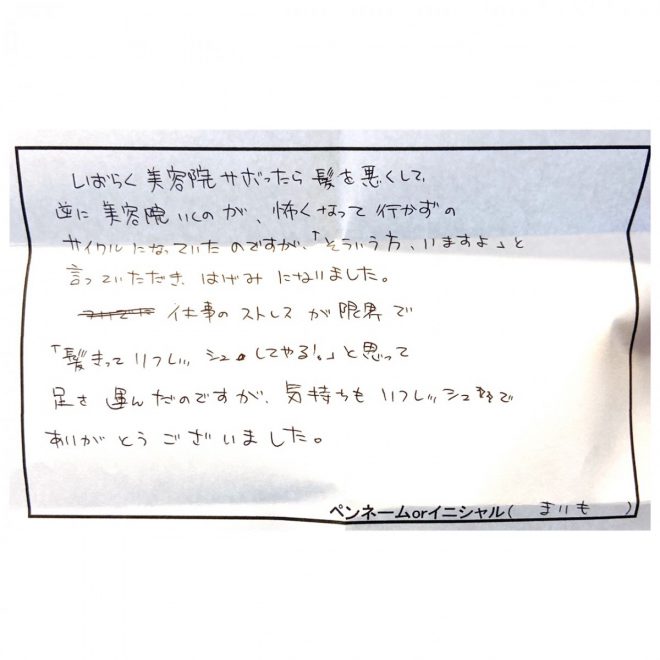 しばらく美容院サボったら髪を悪くして
逆に美容院いくのが、怖くなって行かずの
サイクルになっていたのですが、「そういう方、いますよ」と
言っていただき、はげみになりました。
仕事のストレスが限界で
「髪きってリフレッシュしてやる!。」と思って
足を運んだのですが、気持ちもリフレッシュで
ありがとうございました。
ペンネームorイニシャル( まりも )